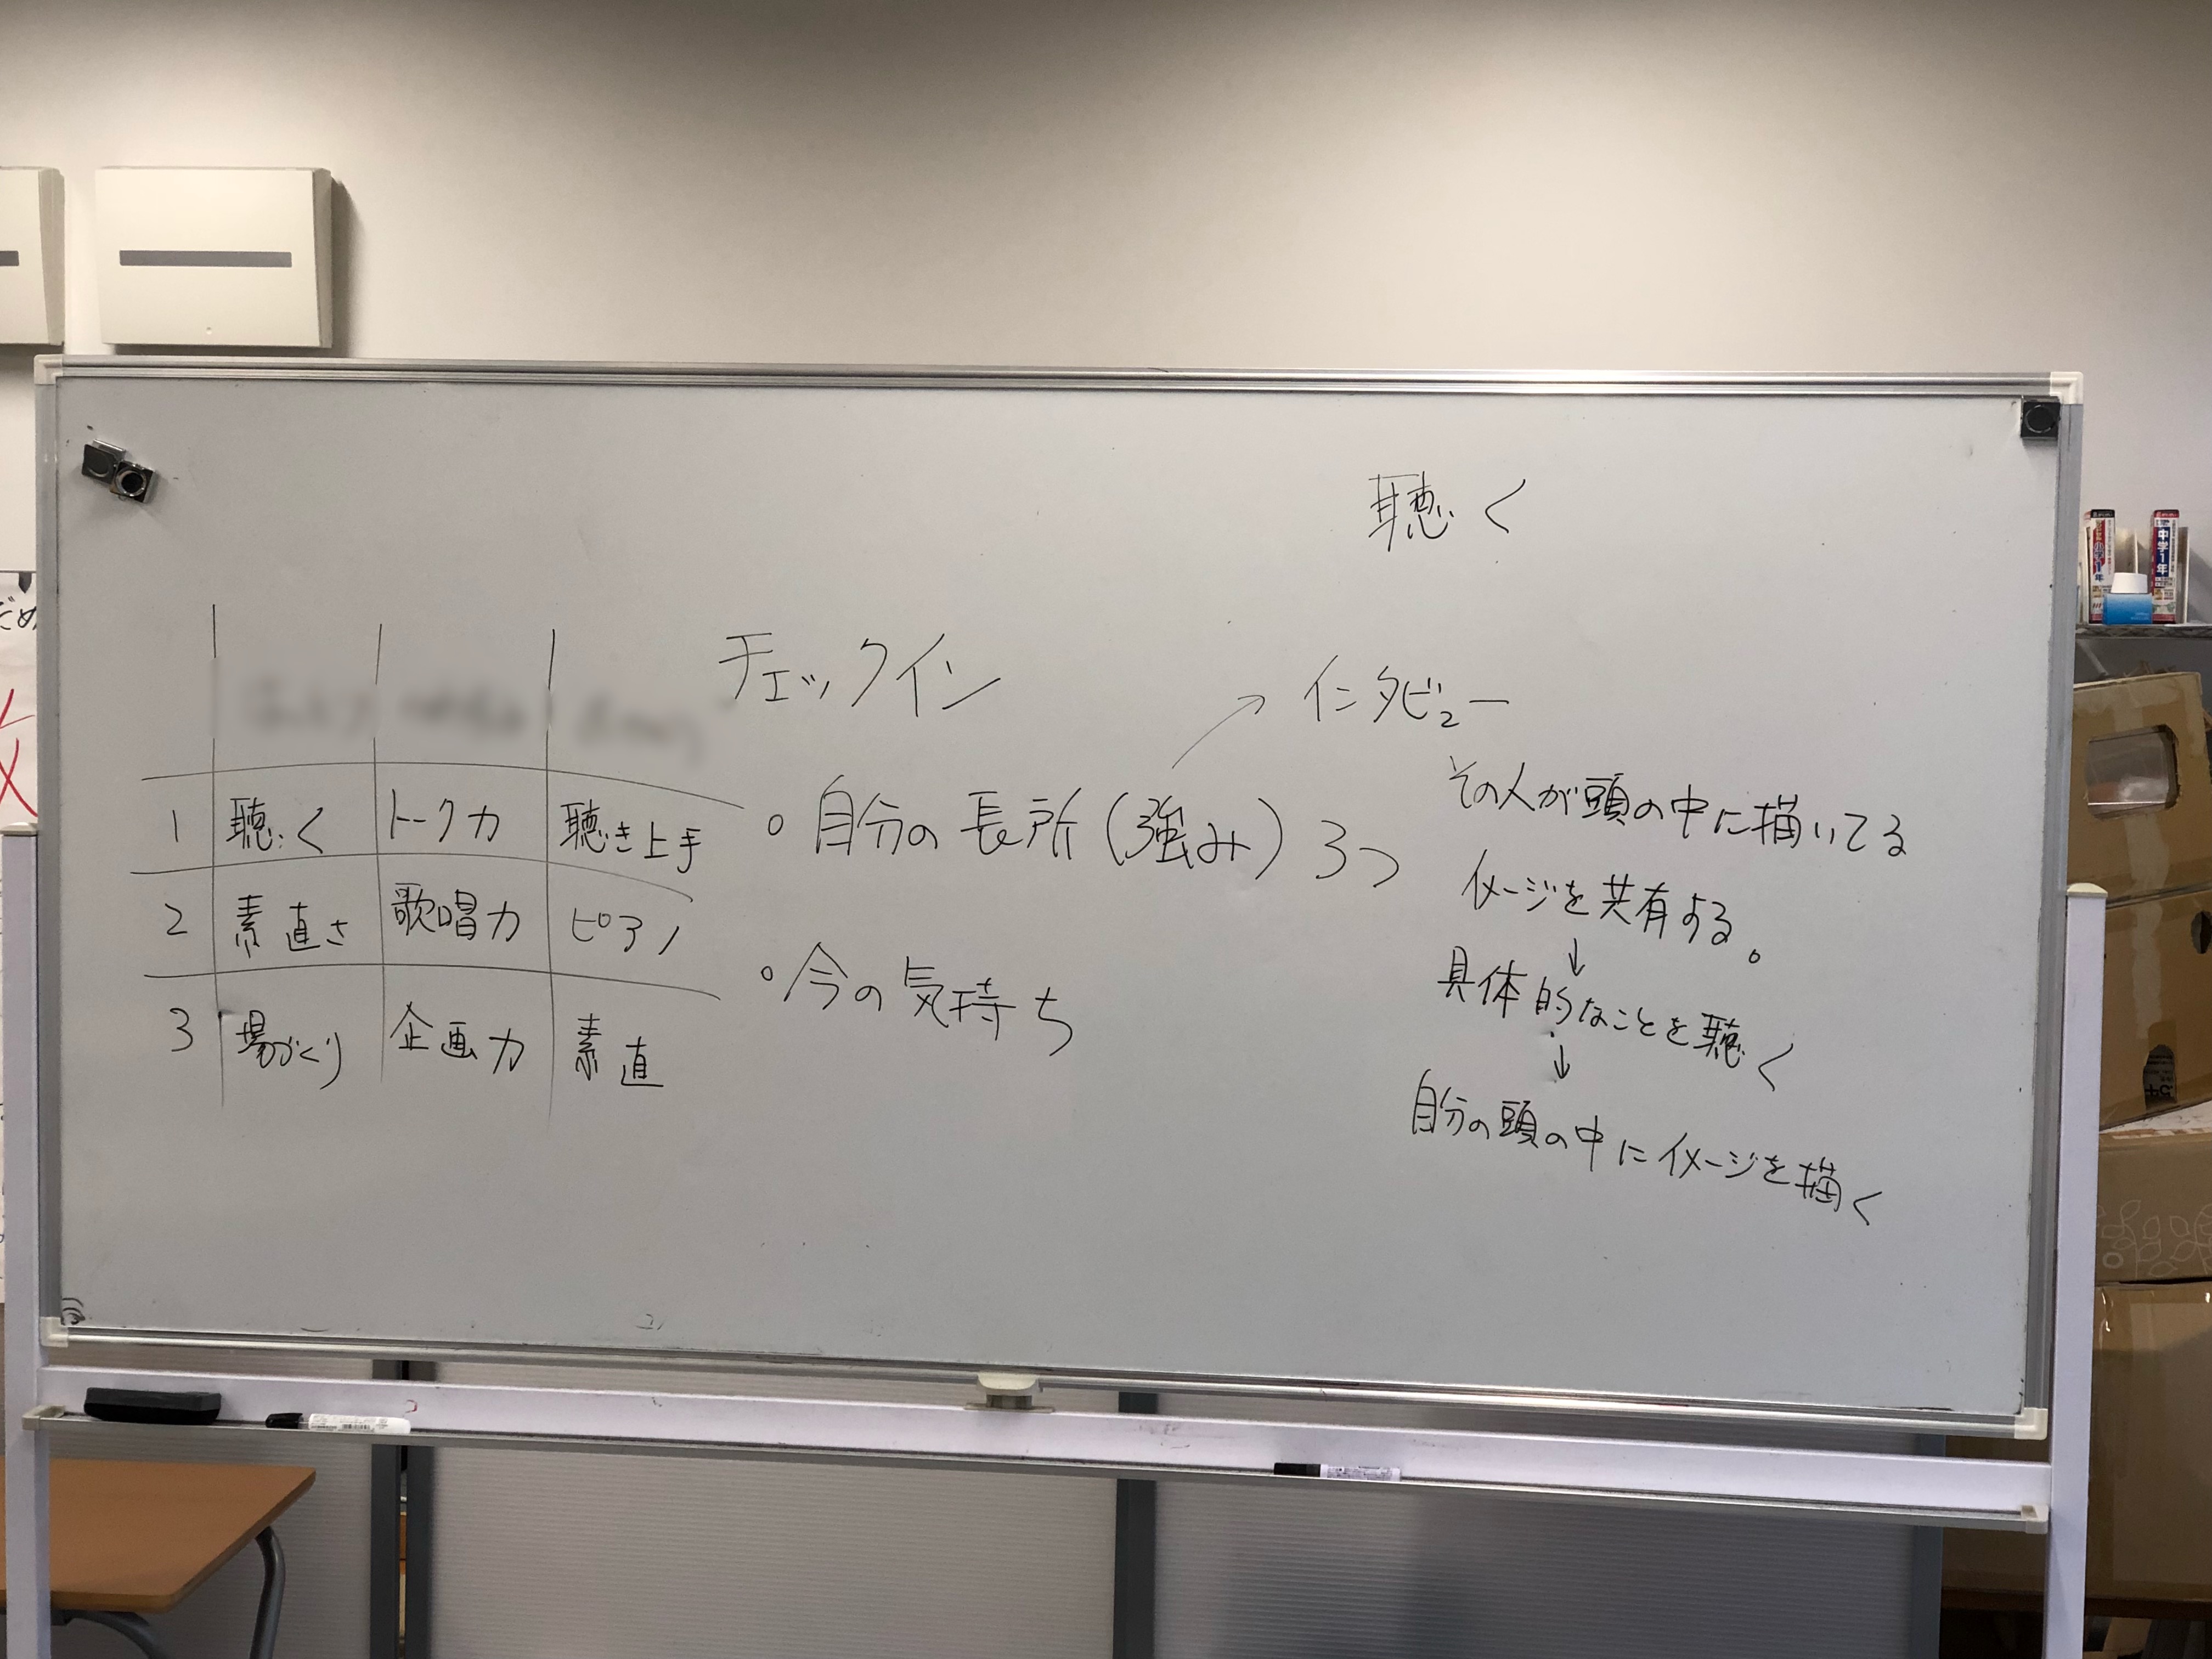 聴く
チェックイン
インタビュー
1 聴く トーク力 聴き上手
2 素直さ 歌唱力 ピアノ
3 場づくり 企画力 素直
。自分の長所(強み)3つ
。今の気持ち
その人が頭の中に描いてる
イメージを共有する。
↓
具体的なことを聴く
↓
自分の頭の中にイメージを描く
中学1年
小学1年
だめ